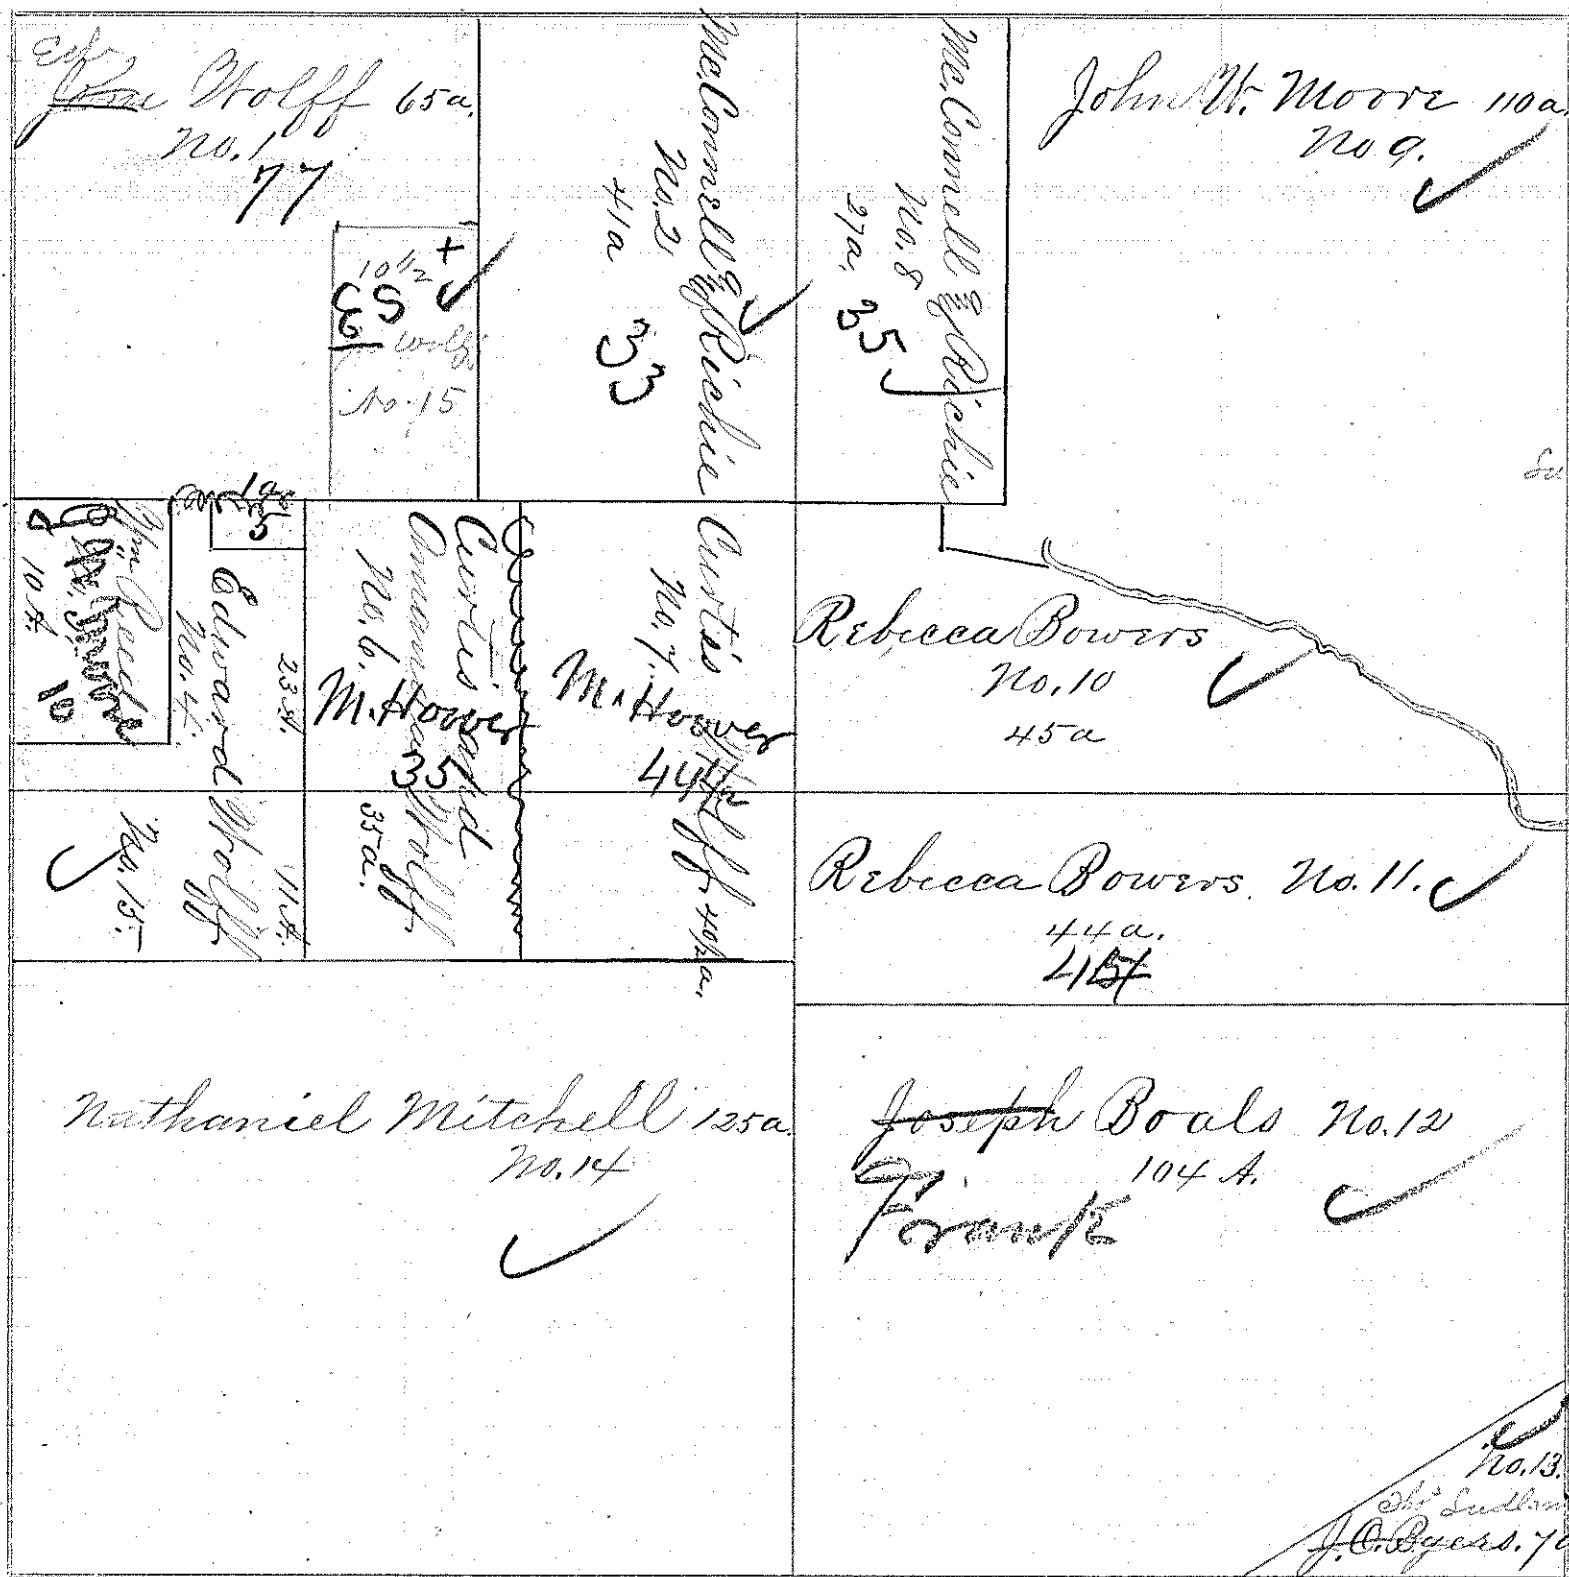 Wolff 65a.
No. 1
77
10 1/2
No. 15
McConnell & Richie
No. 2
41a
33
McConnell & Richie
No. 8
27a.
35
John W. Moore 110a.
No 9.
5
10 A.
10
Edward Wolff
No. 4.
23 A.
11 A.
No. 15.
Curtis and
Amanda Wolff
No. 6.
35a.
M. Hoover
35
Curtis Wolff
No. 7.
M. Hoover
44
Rebecca Bowers
No. 10
45a
Rebecca Bowers. No. 11.
44a.
Nathaniel Mitchell 125a.
No. 14
Joseph Boals No. 12
104 A.
Frank
No. 13.
J. C. Byers.